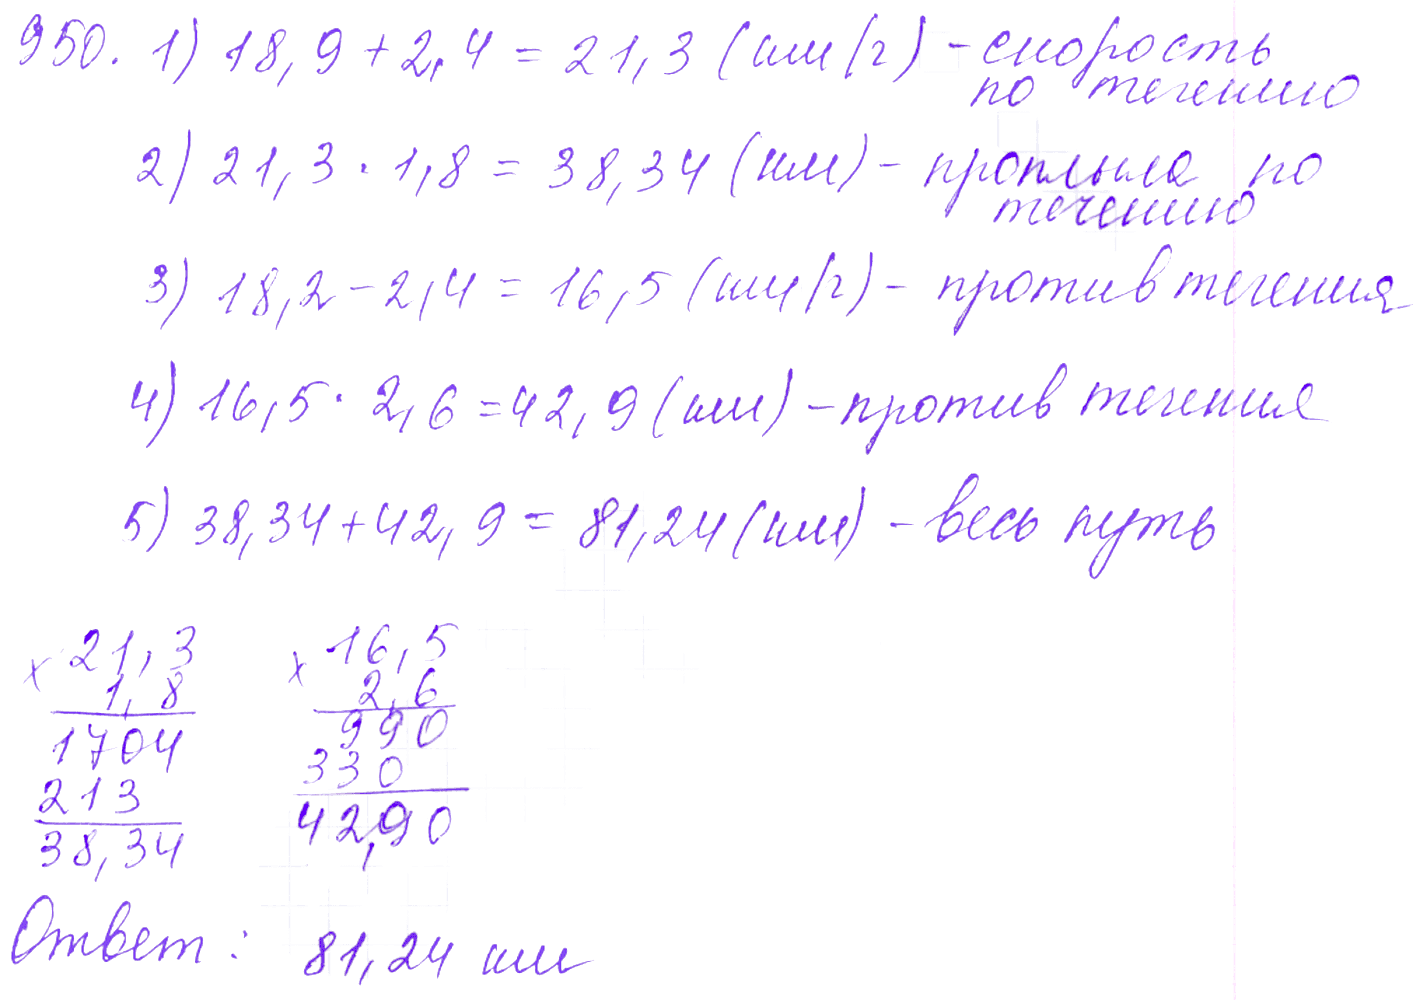 950. 1) 18,9 + 2,4 = 21,3 (км/г) - скорость
по течению
2) 21,3 · 1,8 = 38,34 (км) - проплыла по
течению
3) 18,2 - 2,4 = 16,5 (км/г) - против течения
4) 16,5 · 2,6 = 42,9 (км) - против течения
5) 38,34 + 42,9 = 81,24 (км) - весь путь
x 21,3
1,8
1704
213
38,34
x 16,5
2,6
990
330
42,90
Ответ: 81,24 км